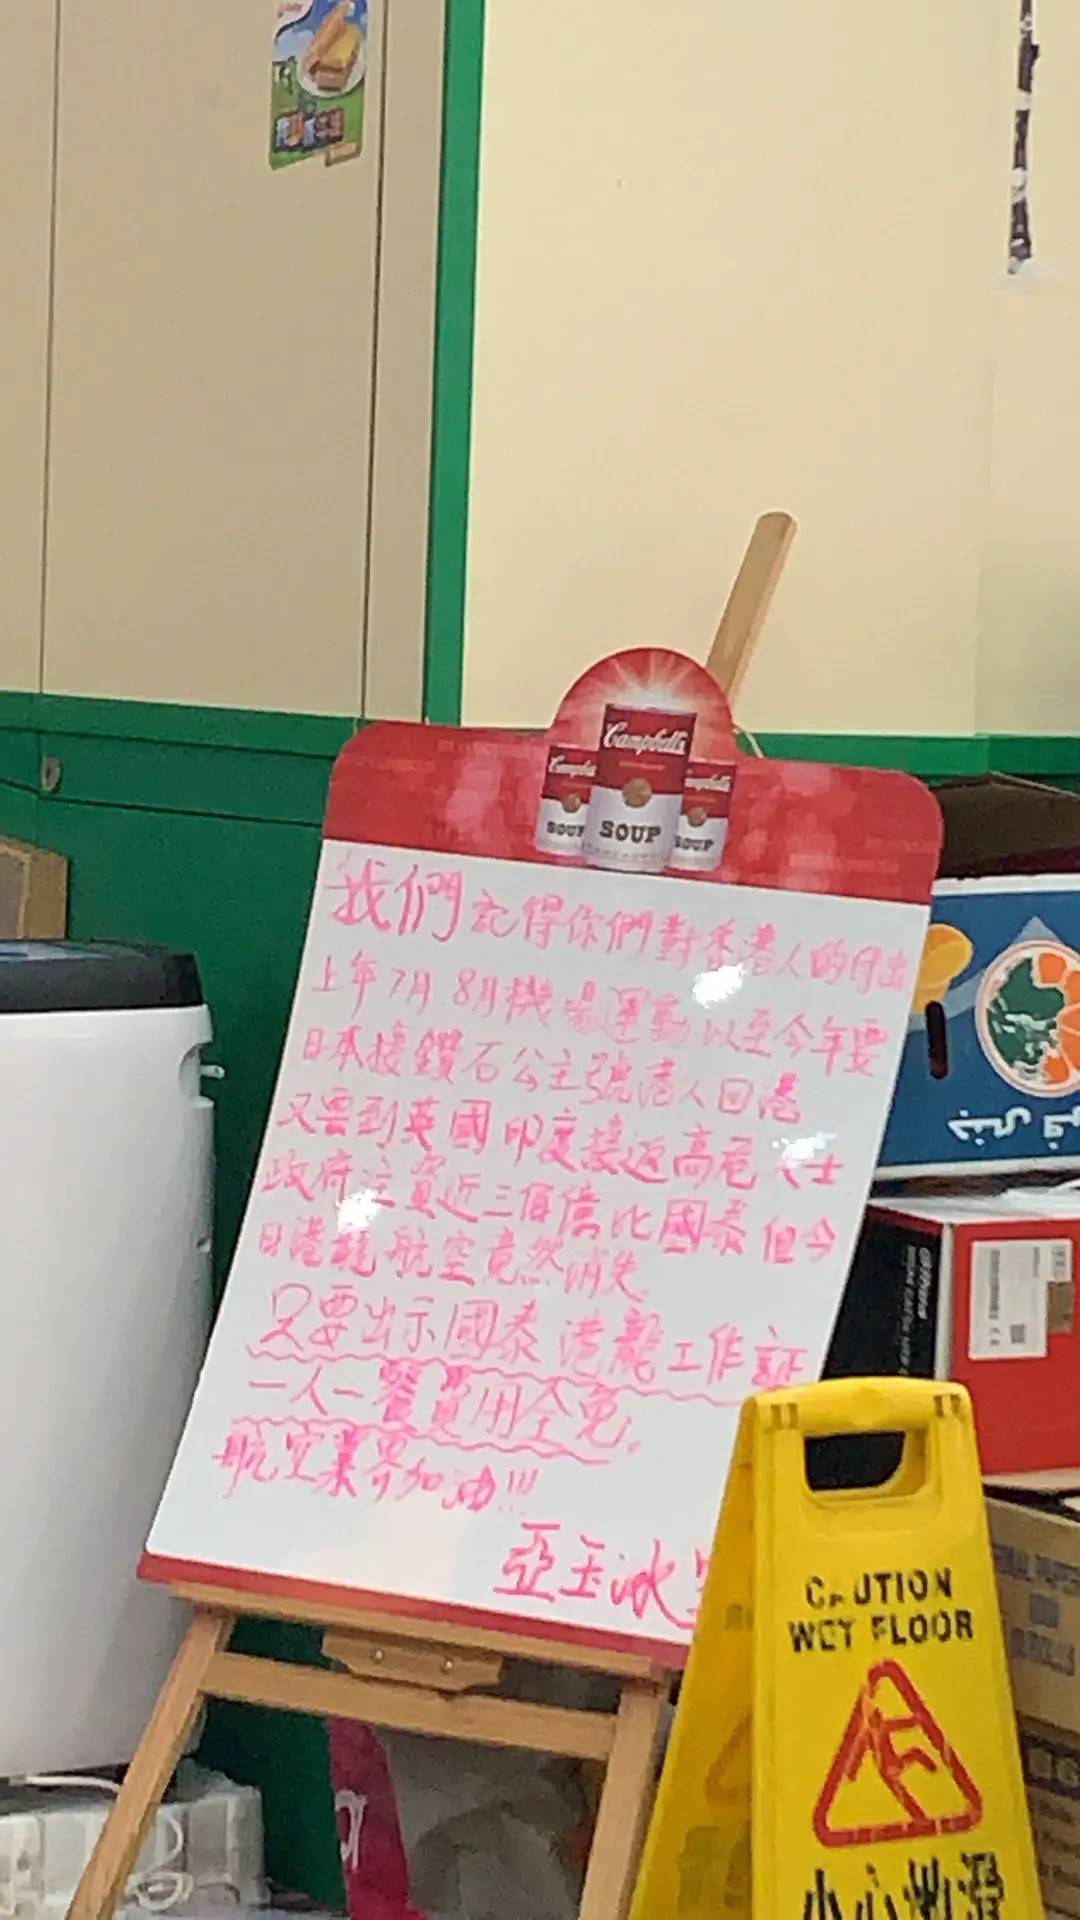 Campbell's
Campbell's
Campbell's
SOUP
SOUP
SOUP
我們記得你們對香港人的付出
上年7月8月機場運動以至今年要
日本接鑽石公主號港人回港
又要到英國印度接返高危人士
政府注資近三佰億比國泰但今
日港龍航空竟然消失
只要出示國泰港龍工作証
一人一餐費用全免。
航空業界加油!!!
亞玉冰室
CAUTION
WET FLOOR
小心地滑